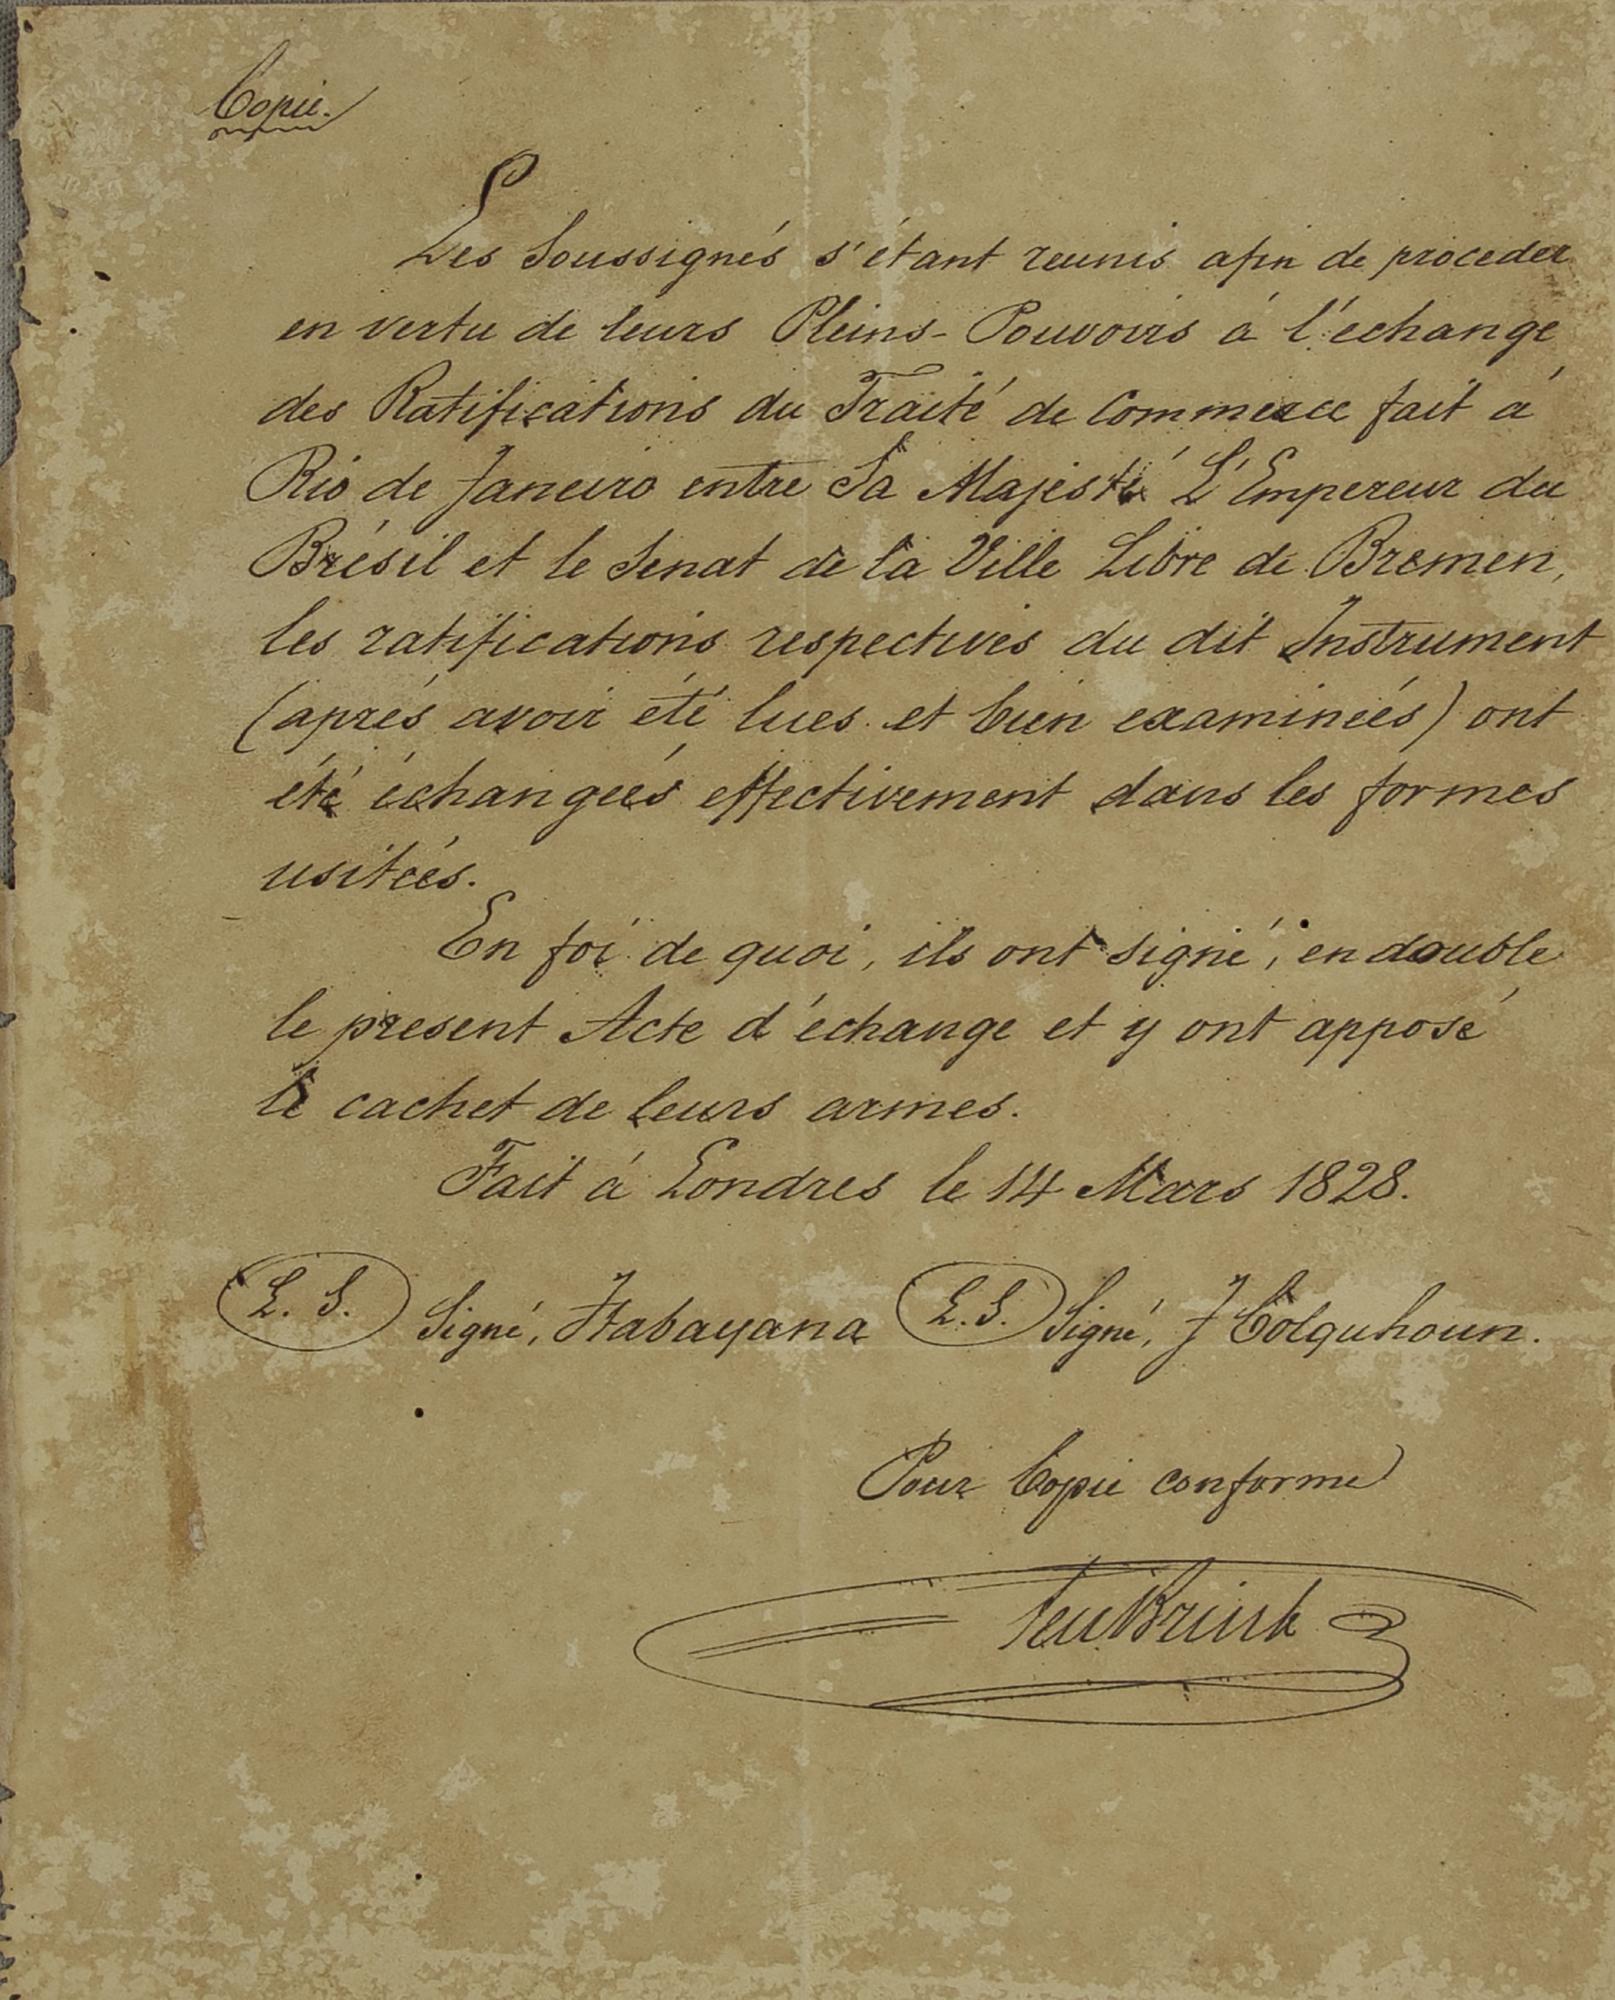 Copie.
Les Soussignés s'étant reunis afin de proceder
en vertu de leurs Pleins-Pouvoirs à l'echange
des Ratifications du Traité de Commerce fait à
Rio de Janeiro entre Sa Majesté L'Empereur du
Brésil et le Senat de la Ville Libre de Bremen,
les ratifications respectives du dit Instrument
(aprés avoir été lues et bien examinées) ont
été échangées effectivement dans les formes
usitées.
En foi de quoi, ils ont signé, en double
le present Acte d'échange et y ont apposé
le cachet de leurs armes.
Fait à Londres le 14 Mars 1828.
L. S. Signé, Itabayana L. S. Signé, J Colquhoun.
Pour Copie conforme